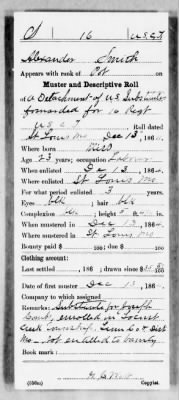 S 16 U.S.C.T.
Alexander Smith
Appears with rank of Pvt on
Muster and Descriptive Roll
of a Detachment of U.S. Substitutes
forwarded for 16 Regt
U S C T Roll dated
St Louis Mo Dec 13, 1864.
Where born Miss
Age 23 years; occupation Laborer
When enlisted Dec 13, 1864.
Where enlisted St Louis Mo
For what period enlisted 3 years.
Eyes blk; hair blk
Complexion ; height 5 ft. in.
When mustered in Dec 13, 1864.
Where mustered in St Louis Mo
Bounty paid $ 100; due $ 100
Clothing account:
Last settled , 186 ; drawn since $ 100
Date of first muster Dec 13, 1864.
Company to which assigned
Remarks: Substitute for
enrolled in Locust
Creek Township, Linn Co Dist
Mo - Not entitled to bounty
Book mark:
(339m) Copyist.